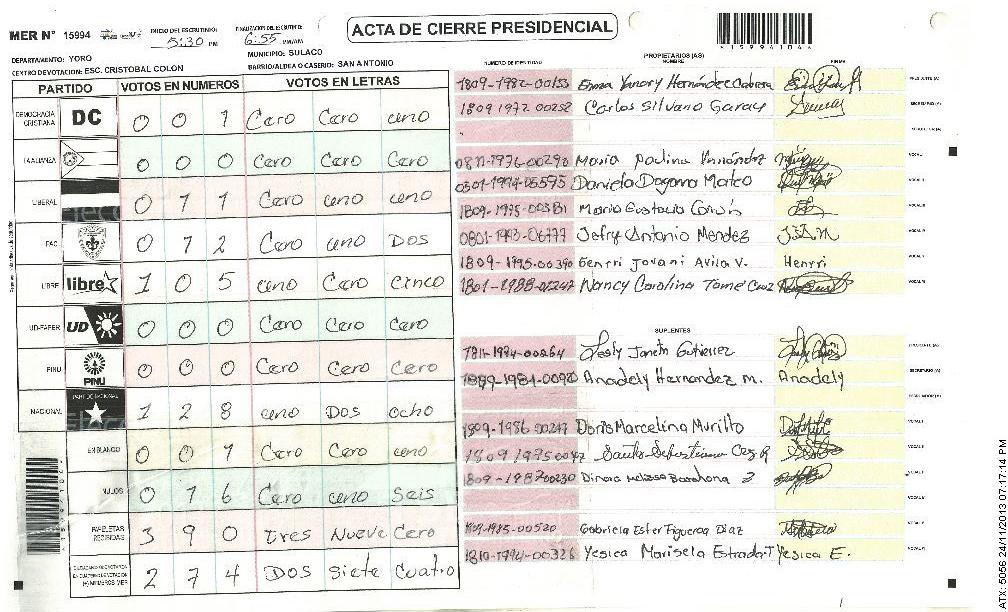 ACTA DE CIERRE PRESIDENCIAL
MER N° 15994
INICIO DEL ESCRUTINIO: 5:30 PM
FINALIZACION DEL ESCRUTINIO: 6:55 PM/AM
15994104
DEPARTAMENTO: YORO
MUNICIPIO: SULACO
CENTRO DE VOTACION: ESC. CRISTOBAL COLON
BARRIO/ALDEA O CASERIO: SAN ANTONIO
PARTIDO VOTOS EN NUMEROS VOTOS EN LETRAS
DEMOCRACIA CRISTIANA DC 0 0 1 Cero Cero uno
LA ALIANZA 0 0 0 Cero Cero Cero
LIBERAL 0 1 1 Cero uno uno
PAC 0 1 2 Cero uno Dos
LIBRE libre 1 0 5 uno Cero Cinco
UD-FAPER UD 0 0 0 Cero Cero Cero
PINU PINU 0 0 0 Cero Cero Cero
NACIONAL PARTIDO NACIONAL 1 2 8 uno Dos ocho
EN BLANCO 0 0 1 Cero Cero uno
NULOS 0 1 6 Cero uno Seis
PAPELETAS RECIBIDAS 3 9 0 tres Nueve Cero
2 7 4 Dos Siete Cuatro
PROPIETARIOS (AS)
NUMERO DE IDENTIDAD NOMBRE FIRMA
1809-1982-00153 Enma Yanory Hernández Cabrera PRESIDENTE (A)
1809 1972 00252 Carlos Silvano Garay SECRETARIO (A)
ESCRUTADOR (A)
0811-1976-00290 Maria Paulina Hernández VOCAL I
0501-1994-05595 Daniela Dayana Mateo VOCAL II
1809-1995-00381 Mario Gustavo VOCAL III
0801-1993-06777 Jefry Antonio Mendez J.A.M VOCAL IV
1809-1995-00390 Henrri Jovani Avila V. Henrri VOCAL V
1801-1988-01247 Nancy Carolina Tome Cruz VOCAL VI
SUPLENTES
1811-1994-00264 Lesly Janeth Gutierrez PRESIDENTE (A)
1809-1984-0092 Anadely Hernandez m. Anadely SECRETARIO (A)
ESCRUTADOR (A)
1809-1986-00247 Doris Marcelina Murillo VOCAL I
1809 1975 Santos Sebastian VOCAL II
1809-1987-00230 Dinora Melissa Barahona VOCAL III
VOCAL IV
1809-1985-00520 Gabriela Ester Figueroa Diaz VOCAL V
1810-1994-00326 Yesica Marisela Estrada T Yesica E. VOCAL VI
ATX: 5056 24/11/2013 07:17:14 PM